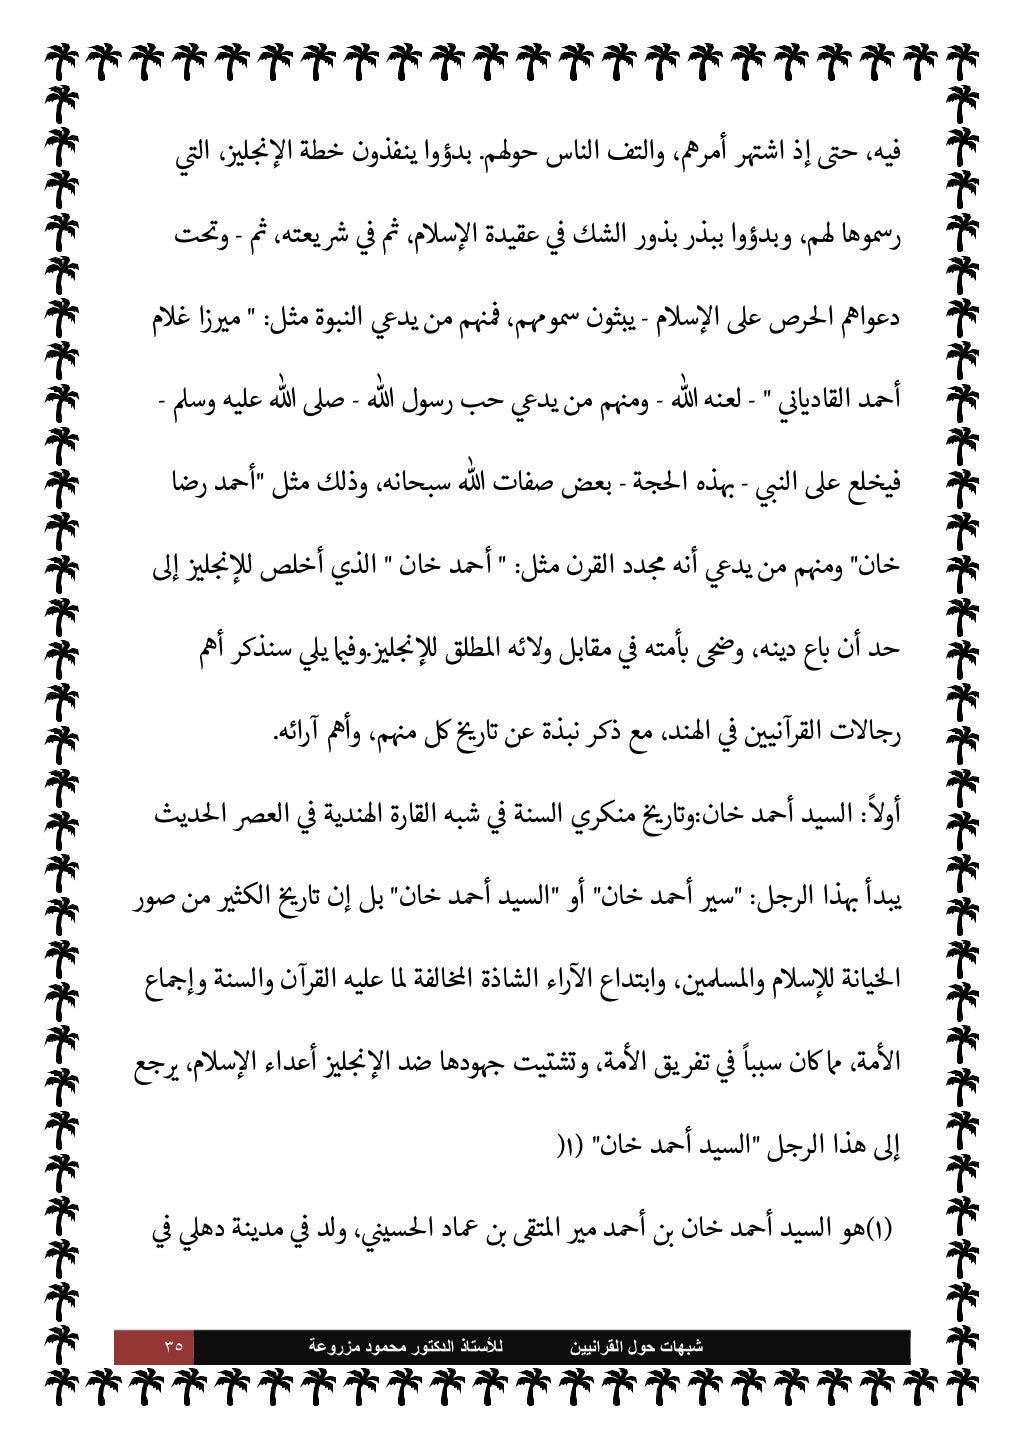 فيه، حتى إذ اشتهر أمرهم، والتف الناس حولهم. بدؤوا ينفذون خطة الإنجليز، التي
رسموها لهم، وبدؤوا ببذر بذور الشك في عقيدة الإسلام، ثم في شريعته، ثم - وتحت
دعواهم الحرص على الإسلام - يبثون سمومهم، فمنهم من يدعي النبوة مثل: " ميرزا غلام
أحمد القادياني " - لعنه الله - ومنهم من يدعي حب رسول الله - صلى الله عليه وسلم -
فيخلع على النبي - بهذه الحجة - بعض صفات الله سبحانه، وذلك مثل "أحمد رضا
خان" ومنهم من يدعي أنه مجدد القرن مثل: " أحمد خان " الذي أخلص للإنجليز إلى
حد أن باع دينه، وضحى بأمته في مقابل ولائه المطلق للإنجليز.وفيما يلي سنذكر أهم
رجالات القرآنيين في الهند، مع ذكر نبذة عن تاريخ كل منهم، وأهم آرائه.
أولاً: السيد أحمد خان:وتاريخ منكري السنة في شبه القارة الهندية في العصر الحديث
يبدأ بهذا الرجل: "سير أحمد خان" أو "السيد أحمد خان" بل إن تاريخ الكثير من صور
الخيانة للإسلام والمسلمين، وابتداع الآراء الشاذة المخالفة لما عليه القرآن والسنة وإجماع
الأمة، مما كان سبباً في تفريق الأمة، وتشتيت جهودها ضد الإنجليز أعداء الإسلام، يرجع
إلى هذا الرجل "السيد أحمد خان" (١(
(١)هو السيد أحمد خان بن أحمد مير المتقى بن عماد الحسيني، ولد في مدينة دهلي في
شبهات حول القرانيين للأستاذ الدكتور محمود مزروعة ٣٥